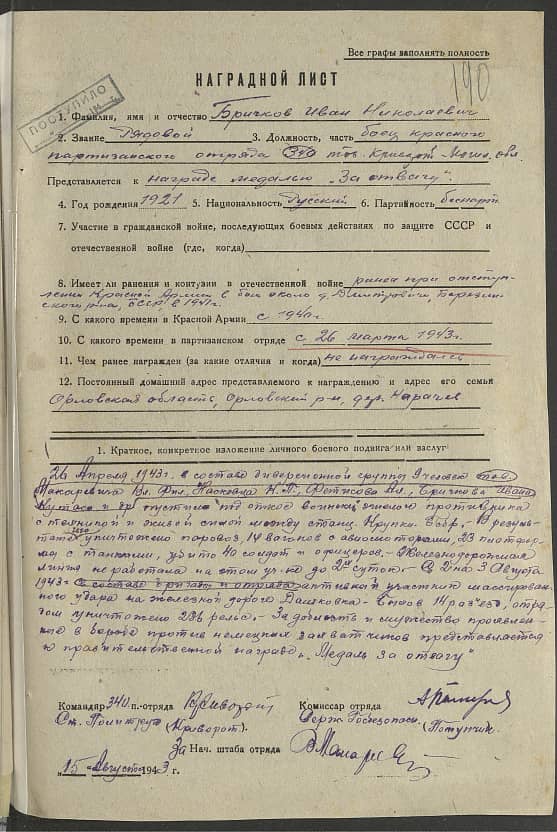 Все графы заполнять полность
190
НАГРАДНОЙ ЛИСТ
ПОСТУПИЛО
1. Фамилия, имя и отчество Бричков Иван Николаевич
2. Звание Рядовой 3. Должность, часть боец красного
партизанского отряда
Представляется к награде медалью „За отвагу"
4. Год рождения 1921 5. Национальность Русский 6. Партийность беспарт
7. Участие в гражданской войне, последующих боевых действиях по защите СССР и
отечественной войне (где, когда)
8. Имеет ли ранения и контузии в отечественной войне ранен при отступ-
лении Красной Армии в бою около д. Дмитровичи,
БССР, в 1941г.
9. С какого времени в Красной Армии с 1940г.
10. С какого времени в партизанском отряде с 26 марта 1943г.
11. Чем ранее награжден (за какие отличия и когда) не награждался
12. Постоянный домашний адрес представляемого к награждению и адрес его семьи
Орловская область, Орловский р-н, дер. Карачев
1. Краткое, конкретное изложение личного боевого подвига или заслуг
26 Апреля 1943г. в составе диверсионной группы 9 человек тов.
Макаревича Вл. Фил., Пасковца Н.П. Фетисова Ил., Бричкова Ивана
и др пустил под откос воинский эшелон противника
с техникой и живой силой между станц. Крупки - Бобр. - В резуль-
тате уничтожено паровоз, 14 вагонов с авиомоторами, 23 платфор-
мы с танками, убито 40 солдат и офицеров. - Железнодорожная
линия не работала на этом уч-ке до 2х суток. - С 2 на 3 Августа
1943г. в составе отряда активный участник массирован-
ного удара на железной дороге Дашковка - разъезд, отря-
дом уничтожено 286 рельс. - За доблесть и мужество проявлен-
ные в борьбе против немецких захватчиков представляется
к правительственной награде. „Медаль За отвагу"
Командир 340 п.-отряда Комиссар отряда
Ст. Политрук (Криворот). Серж Госбезопасн. (Потупчик.
За Нач. штаба отряда
„15" Августа 1943 г.